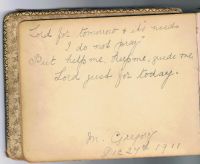 Lord for tomorrow & its needs
I do not pray"
But help me, keep me, guide me
Lord just for today.
M. Gregory
Dec 27th 1911